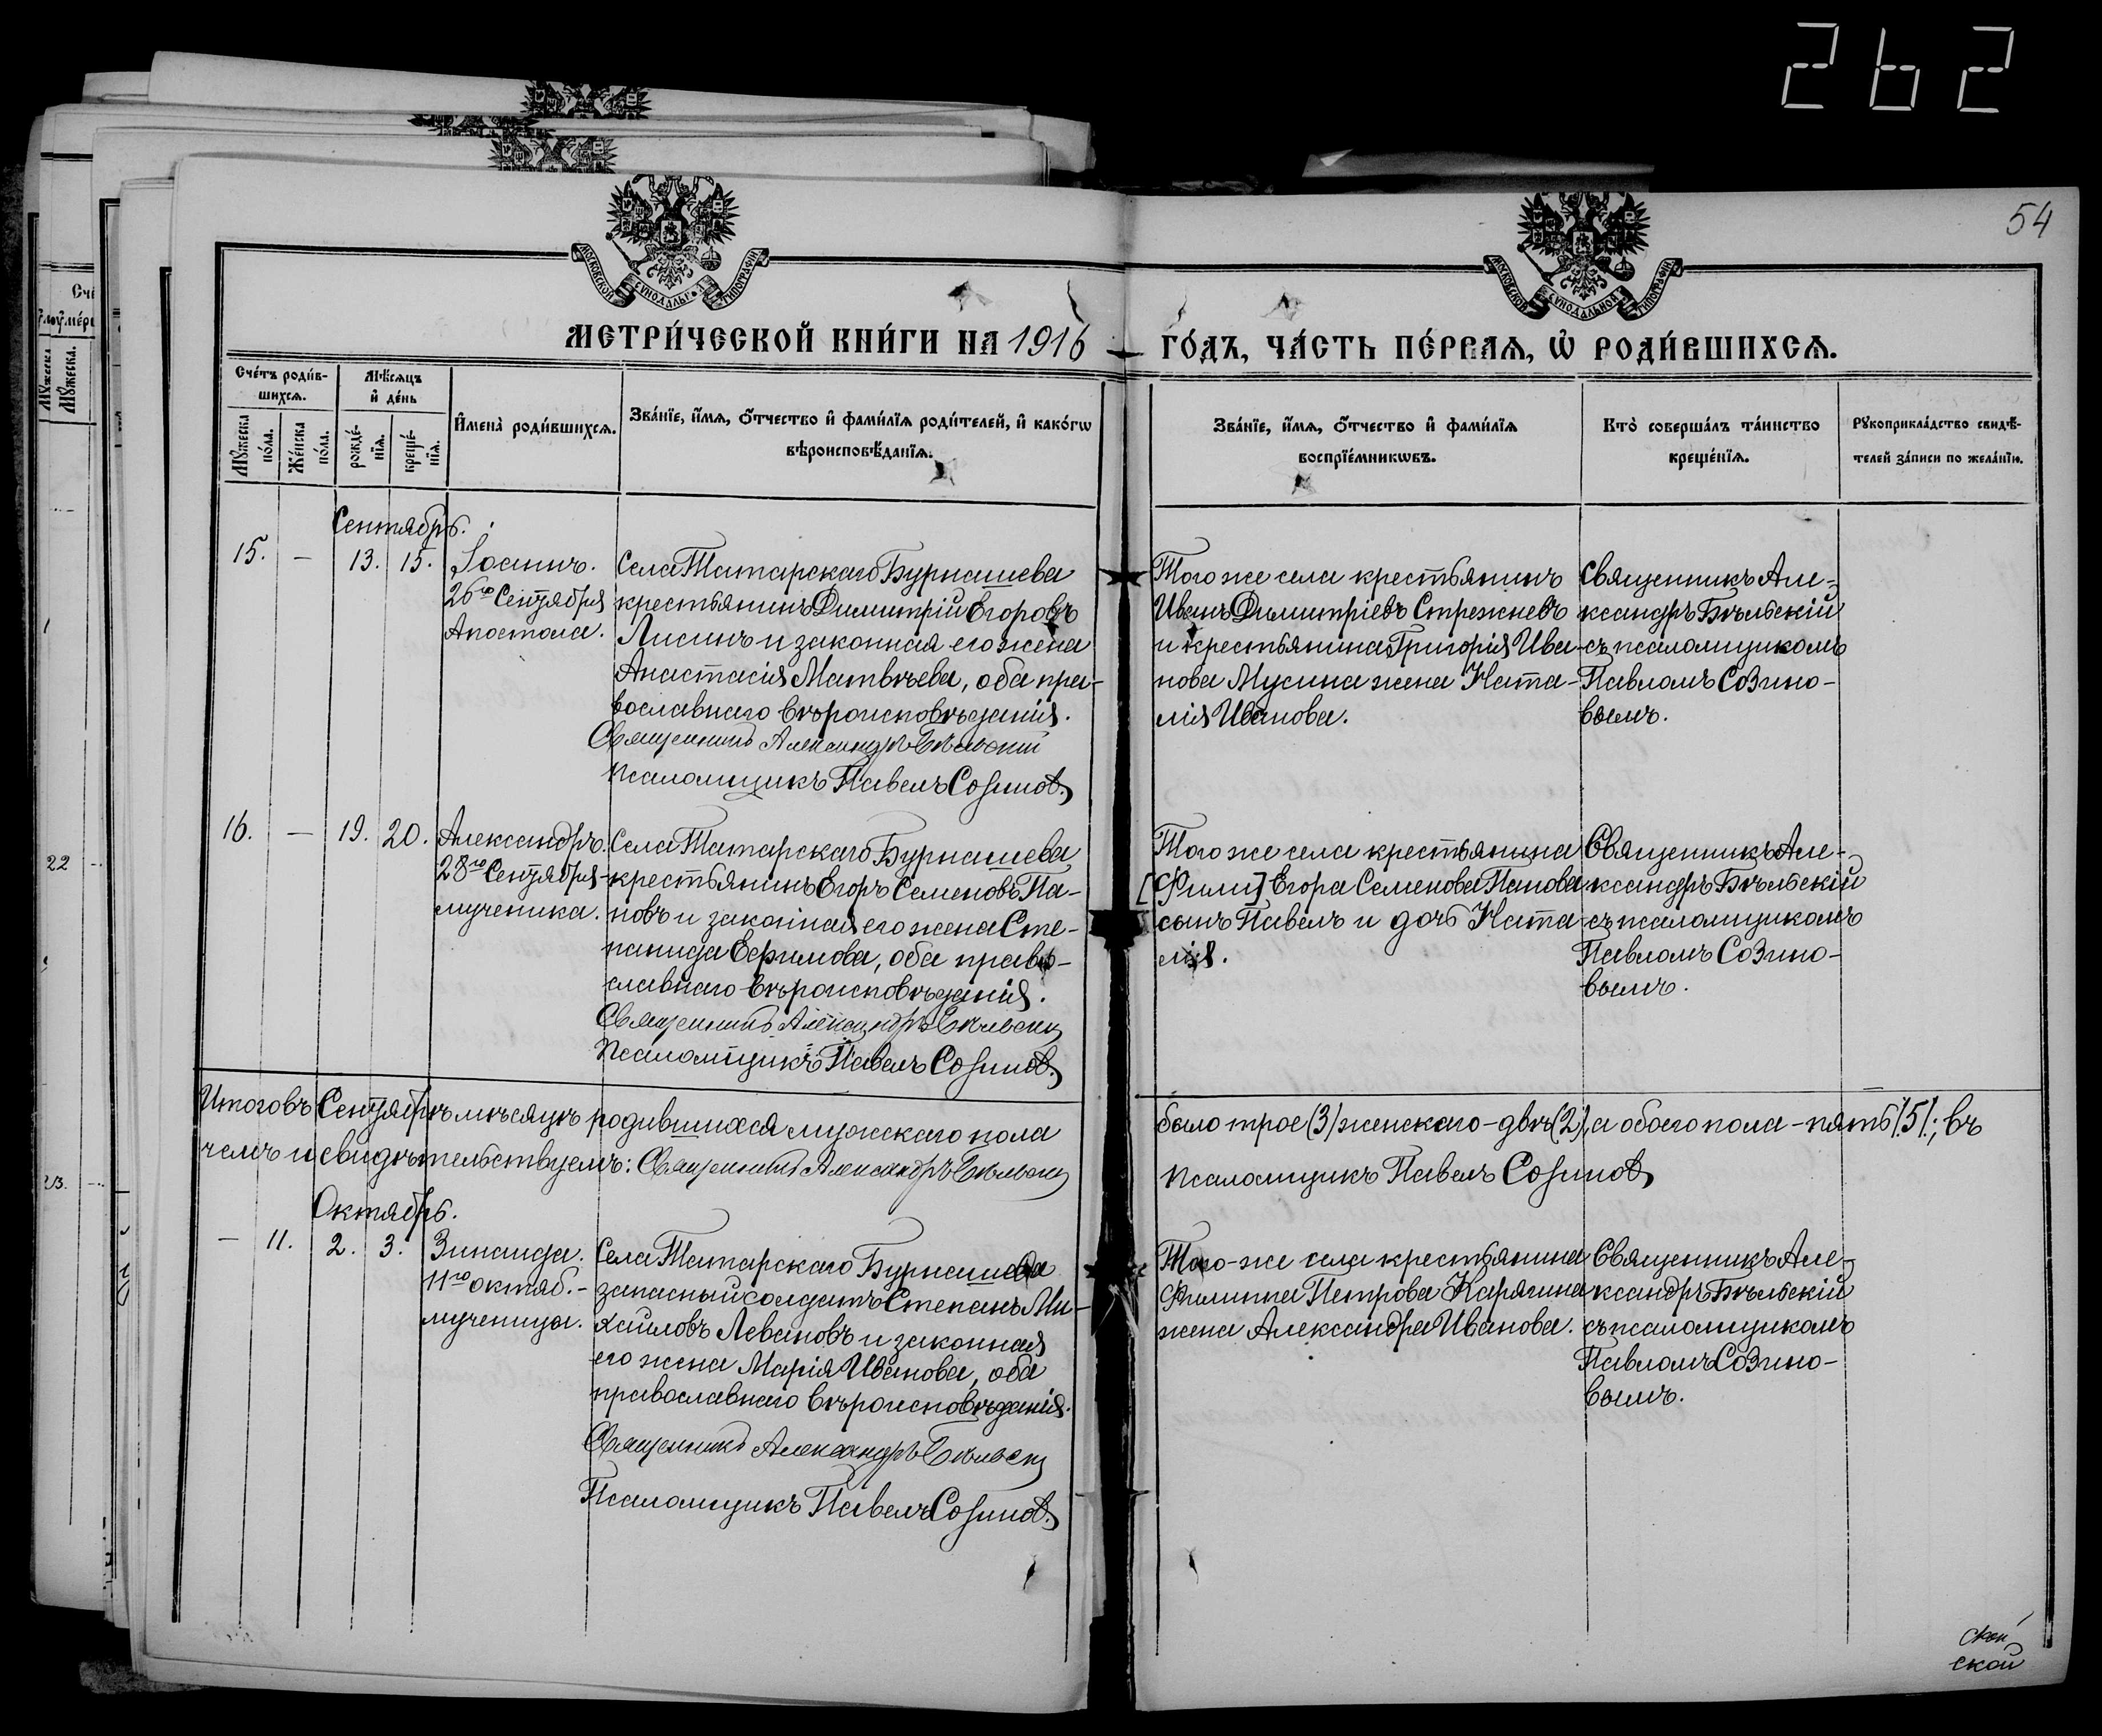 262
54
МОСКОВСКОЙ СѴНОДАЛЬНОЙ ТИПОГРАФІИ.
МОСКОВСКОЙ СѴНОДАЛЬНОЙ ТИПОГРАФІИ.
МЕТРИ́ЧЕСКОЙ КНИ́ГИ НА 1916
ГО́ДЪ, ЧА́СТЬ ПЕ́РВАЯ, Ѡ РОДИ́ВШИХСЯ.
Сче́тъ роди́в-
шихся.
Мѣ́сяцъ
и҆ де́нь
Му́жеска
по́ла.
Же́нска
по́ла.
рожде́-
нїя.
креще́-
нїя.
И҆мена̀ роди́вшихся.
Зва́нїе, и҆́мя, ѻ҆́тчество и҆ фами́лїя роди́телей, и҆ како́гѡ
вѣроисповѣ́данїя.
Зва́нїе, и҆́мя, ѻ҆́тчество и҆ фами́лїя
воспрїе́мникѡвъ.
Кто̀ соверша́лъ та́инство
креще́нїя.
Рꙋкоприкла́дство свидѣ́-
телей за́писи по жела́нїю.
Сентябрь.
15. — 13. 15. Іоаннъ.
26го Сентября
Апостола.
Села Татарскаго Бурнашева
крестьянинъ Димитрій Егоровъ
Лисинъ и законная его жена
Анастасія Матвѣева, оба пра-
вославнаго вѣроисповѣданія.
Священникъ Александръ Бѣльскій
Псаломщикъ Павелъ Созинов.
Того же села крестьянинъ
Иванъ Димитріевъ Стрежневъ
и крестьянина Григорія Ива-
нова Мусина жена Ната-
лія Иванова.
Священникъ Але-
ксандръ Бѣльскій
съ псаломщикомъ
Павломъ Созино-
вымъ.
16. — 19. 20. Александръ.
28го Сентября-
мученика.
Села Татарскаго Бурнашева
крестьянинъ Егоръ Семеновъ Па-
новъ и законная его жена Сте-
панида Ефимова, оба право-
славнаго вѣроисповѣданія.
Священникъ Александръ Бѣльскій
Псаломщикъ Павелъ Созинов.
Того же села крестьянина
[Фили] Егора Семенова Панова
сынъ Павелъ и дочь Ната-
лія.
Священникъ Але-
ксандръ Бѣльскій
съ псаломщикомъ
Павломъ Созино-
вымъ.
Итого въ Сентябрѣ мѣсяцѣ родившихся мужскаго пола
было трое (3) женскаго - двѣ (2), а обоего пола - пять /5/; въ
чемъ и свидѣтельствуемъ: Священникъ Александръ Бѣльскій
Псаломщикъ Павелъ Созинов
Октябрь.
— 11. 2. 3. Зинаида.
11го октяб.-
мученицы.
Села Татарскаго Бурнашева
запасный солдатъ Степанъ Ми-
хаиловъ Левановъ и законная
его жена Марія Иванова, оба
православнаго вѣроисповѣданія.
Священникъ Александръ Бѣльскій
Псаломщикъ Павелъ Созинов.
Того-же села крестьянина
Филиппа Петрова Карягина
жена Александра Иванова.
Священникъ Але-
ксандръ Бѣльскій
съ псаломщикомъ
Павломъ Созино-
вымъ.
ской